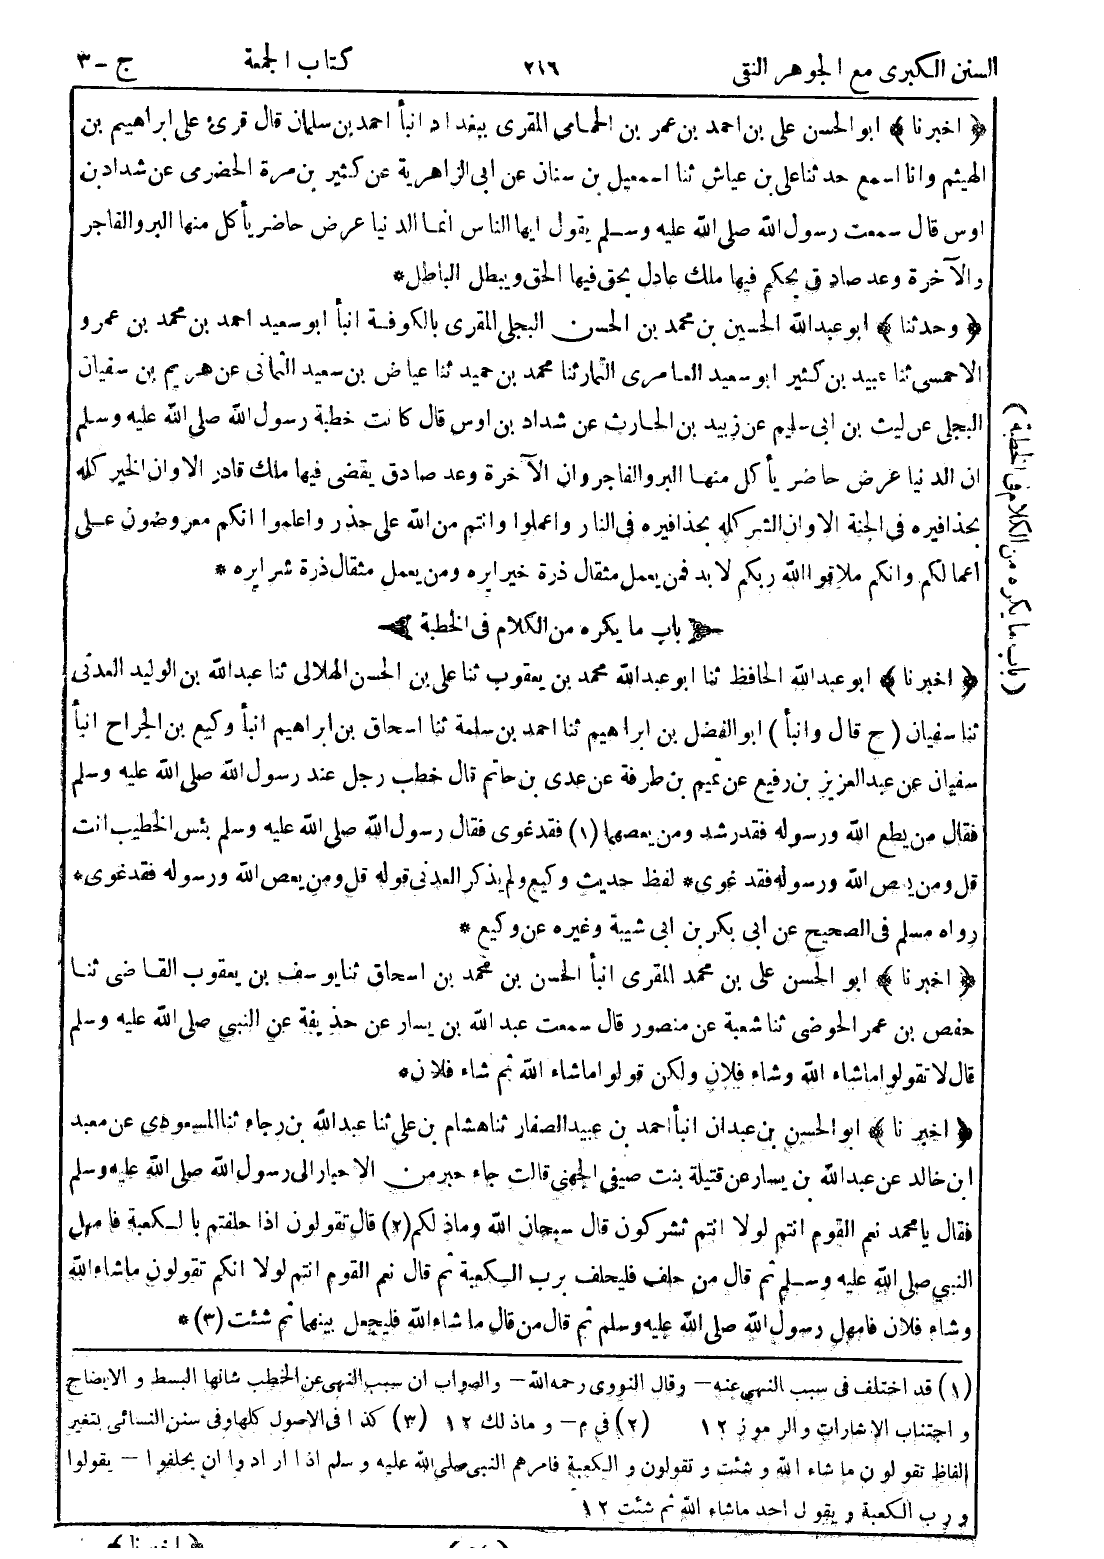 السنن الكبرى مع الجوهر النقى ٢١٦ كتاب الجمعة ج - ٣
﴿ اخبرنا ﴾ ابو الحسن على بن احمد بن عمر بن الحمامى المقرى ببغداد انبأ احمد بن سلمان قال قرئ على ابراهيم بن
الهيثم وانا اسمع حدثنا على بن عياش ثنا اسمعيل بن سنان عن ابى الزاهرية عن كثير بن مرة الحضرى عن شداد بن
اوس قال سمعت رسول الله صلى الله عليه وسلم يقول ايها الناس انما الدنيا عرض حاضر يأكل منها البر والفاجر
والآخرة وعد صادق يحكم فيها ملك عادل يحق فيها الحق ويبطل الباطل *
﴿ وحدثنا ﴾ ابو عبدالله الحسين بن محمد بن الحسن البجلى المقرى بالكوفة انبأ ابو سعيد احمد بن محمد بن عمرو
الاحمسى ثنا عبيد بن كثير ابو سعيد العامرى التمار ثنا محمد بن حميد ثنا عياض بن سعيد الثمانى عن هريم بن سفيان
البجلى عن ليث بن ابى سليم عن زبيد بن الحارث عن شداد بن اوس قال كانت خطبة رسول الله صلى الله عليه وسلم
ان الدنيا عرض حاضر يأكل منها البر والفاجر وان الآخرة وعد صادق يقضى فيها ملك قادر الاوان الخير كله
بحذافيره فى الجنة الاوان الشر كله بحذافيره فى النار واعملوا وانتم من الله على حذر واعلموا انكم معروضون على
اعمالكم وانكم ملاقوا الله ربكم لا بد فمن يعمل مثقال ذرة خيرا يره ومن يعمل مثقال ذرة شرا يره *
﴿ باب ما يكره من الكلام فى الخطبة ﴾
( باب ما يكره من الكلام فى الخطبة )
﴿ اخبرنا ﴾ ابو عبدالله الحافظ ثنا ابو عبدالله محمد بن يعقوب ثنا على بن الحسن الهلالى ثنا عبدالله بن الوليد العدنى
ثنا سفيان ( ح قال وانبأ ) ابو الفضل بن ابراهيم ثنا احمد بن سلمة ثنا اسحاق بن ابراهيم انبأ وكيع بن الجراح انبأ
سفيان عن عبدالعزيز بن رفيع عن تميم بن طرفة عن عدى بن حاتم قال خطب رجل عند رسول الله صلى الله عليه وسلم
فقال من يطع الله ورسوله فقد رشد ومن يعصهما (١) فقد غوى فقال رسول الله صلى الله عليه وسلم بئس الخطيب انت
قل ومن يعص الله ورسوله فقد غوى * لفظ حديث وكيع ولم يذكر العدنى قوله قل ومن يعص الله ورسوله فقد غوى *
رواه مسلم فى الصحيح عن ابى بكر بن ابى شيبة وغيره عن وكيع *
﴿ اخبرنا ﴾ ابو الحسن على بن محمد المقرى انبأ الحسن بن محمد بن اسحاق ثنا يوسف بن يعقوب القاضى ثنا
حفص بن عمر الحوضى ثنا شعبة عن منصور قال سمعت عبدالله بن يسار عن حذيفة عن النبى صلى الله عليه وسلم
قال لا تقولوا ماشاء الله وشاء فلان ولكن قولوا ماشاء الله ثم شاء فلان *
﴿ اخبرنا ﴾ ابو الحسن بن عبدان انبأ احمد بن عبيد الصفار ثنا هشام بن على ثنا عبدالله بن رجاء ثنا المسعودى عن معبد
ابن خالد عن عبدالله بن يسار عن قتيلة بنت صيفى الجهنى قالت جاء حبر من الاحبار الى رسول الله صلى الله عليه وسلم
فقال يا محمد نعم القوم انتم لولا انتم تشركون قال سبحان الله وماذلكم (٢) قال تقولون اذا حلفتم بالكعبة فامهل
النبى صلى الله عليه وسلم ثم قال من حلف فليحلف برب الكعبة ثم قال نعم القوم انتم لولا انكم تقولون ماشاء الله
وشاء فلان فامهل رسول الله صلى الله عليه وسلم ثم قال من قال ما شاء الله فليجعل بينهما ثم شئت (٣) *
(١) قد اختلف فى سبب النهى عنه – وقال النووى رحمه الله – والصواب ان سبب النهى عن الخطب شانها البسط و الايضاح
و اجتناب الاشارات والرموز ١٢ (٢) فى م – و ماذلك ١٢ (٣) كذا فى الاصول كلها وفى سنن النسائى بتغير
الفاظ تقولون ما شاء الله و شئت و تقولون و الكعبة فامرهم النبى صلى الله عليه و سلم اذا ارادوا ان يحلفوا – يقولوا
و رب الكعبة و يقول احد ماشاء الله ثم شئت ١٢
﴿ اخبرنا ﴾